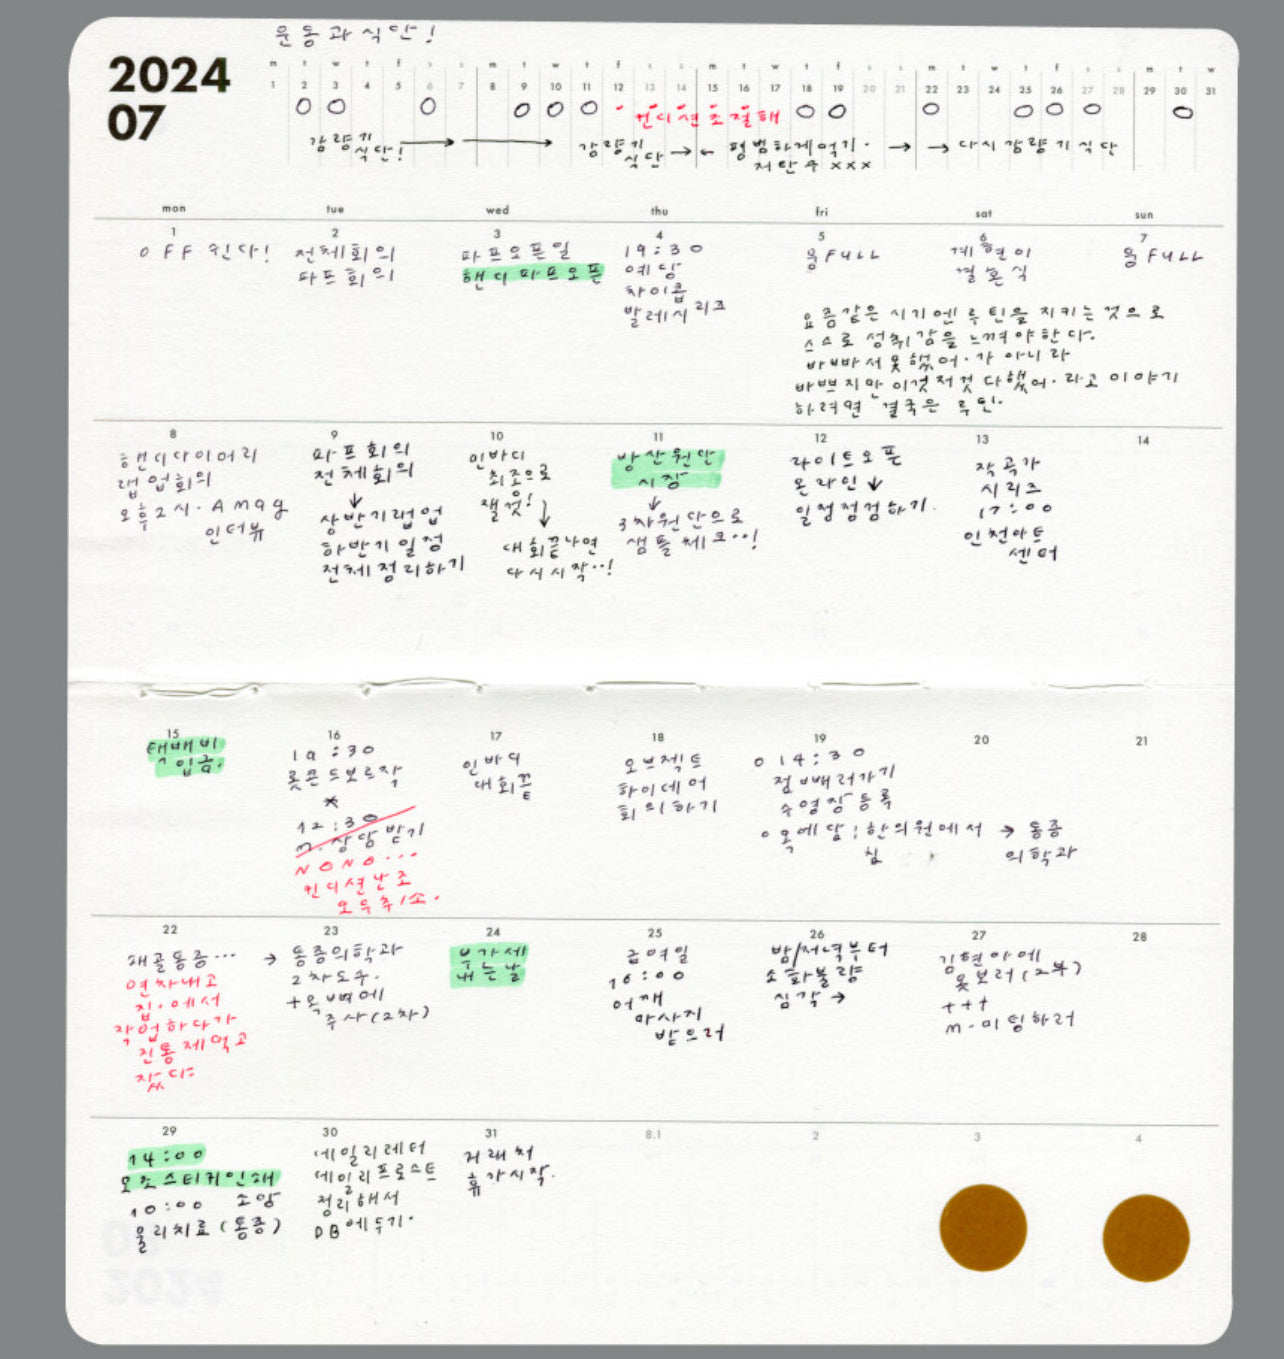 운동과식단!
2024
07
m t w t f s s m t w t f s s m t w t f s s m t w t f s s m t w
1 2 3 4 5 6 7 8 9 10 11 12 13 14 15 16 17 18 19 20 21 22 23 24 25 26 27 28 29 30 31
컨디션조절해
감량기
식단! → → 감량기
식단 → ← 평범하게먹기.
저탄수 xxx → → 다시감량기식단
mon tue wed thu fri sat sun
1
OFF 쉰다!
2
전체회의
파프회의
3
파프오픈일
핸디파프오픈
4
19:30
예당
차이콥
발레시리즈
5
웅FULL
6
계현이
결혼식
7
웅FULL
요즘같은시기엔루틴을지키는것으로
스스로성취감을느껴야한다.
바빠서못했어.가 아니라
바쁘지만이것저것다했어.라고이야기
하려면 결국은 루틴.
8
핸디다이어리
랩업회의
오후2시.Amag
인터뷰
9
파프회의
전체회의
↓
상반기랩업
하반기일정
전체정리하기
10
인바디
최조으로
잴것!
↓
대회끝나면
다시시작..!
11
방산원단
시장
↓
3차원단으로
샘플체크..!
12
라이트오픈
온라인↓
일정점검하기.
13
작곡가
시리즈
17:00
인천아트
센터
14
15
택배비
입금.
16
19:30
롯콘드보르작
*
12:30
m.상담받기
NONO...
컨디션난조
모두취소.
17
인바디
대회끝
18
오브젝트
하이데어
회의하기
19
○ 14:30
점빼러가기
수영장등록
○ 목에담; 한의원에서 → 통증
침 의학과
20
21
22
쇄골통증... →
연차내고
집.에서
작업하다가
진통제먹고
잤다:
23
통증의학과
2차도수.
+목뼈에
주사(2차)
24
부가세
내는날
25
급여일
16:00
어깨
마사지
받으러
26
밤/저녁부터
소화불량
심각→
27
김현아에
옷보러(2부)
+++
m.미팅하러
28
29
14:00
오조스티커인쇄
10:00 소망
물리치료(통증)
30
데일리레터
데일리프로스트
정리해서
DB에두기.
31
거래처
휴가시작.
8.1
2
3
4